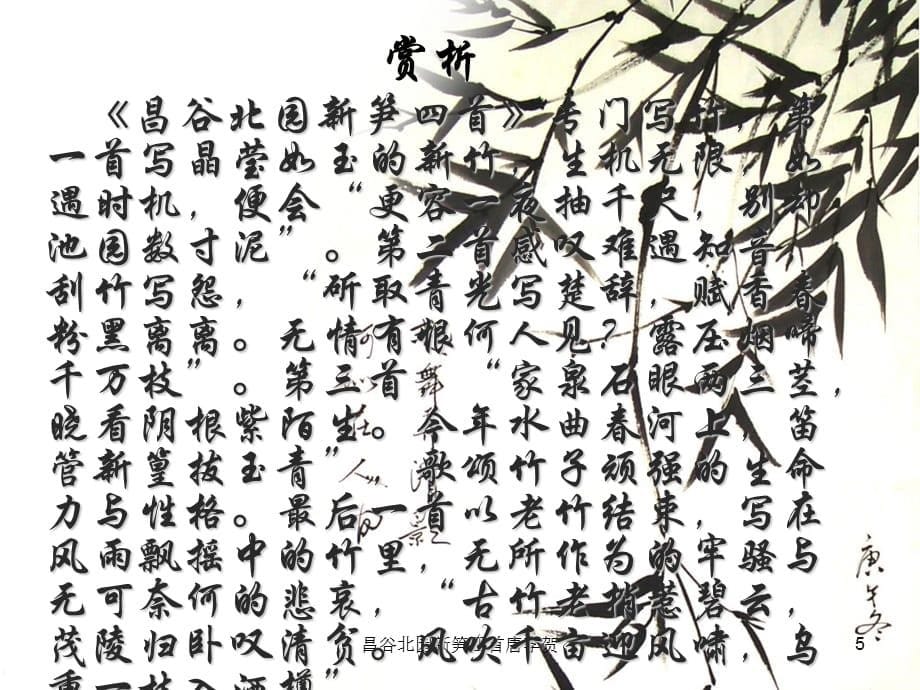 赏析
《昌谷北园新笋四首》专门写竹，第
一首写晶莹如玉的新竹，生机无限，如
遇时机，便会“更容一夜抽千尺，别却
池园数寸泥”。第二首感叹难遇知音，
刮竹写怨，“斫取青光写楚辞，赋香春
粉黑离离。无情有恨何人见？露压烟啼
千万枝”。第三首“家泉石眼两三茎，
晓看阴根紫陌生。今年水曲春河上，笛
管新篁拔玉青”歌颂竹子顽强的生命
力与性格。最后一首以老竹结束，写在
风雨飘摇中的竹里，无所作为的牢骚与
无可奈何的悲哀，“古竹老梢惹碧云，
茂陵归卧叹清贫。风吹千亩迎风啸，乌
重一枝入酒樽
昌谷北园新笋四首唐李贺
5
庚午冬